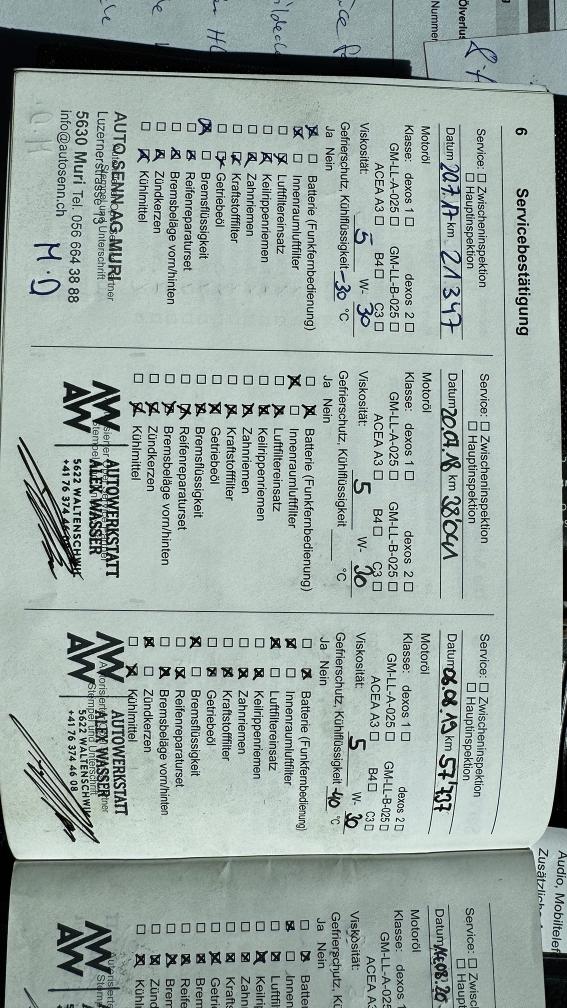 6 Servicebestätigung
Service: ☐ Zwischeninspektion
☐ Hauptinspektion
Datum 20.7.17 km 21347
Motoröl
Klasse: dexos 1 ☐ dexos 2 ☐
GM-LL-A-025 ☐ GM-LL-B-025 ☐
ACEA A3 ☐ B4 ☐ C3 ☐
Viskosität: 5 W- 30
Gefrierschutz, Kühlflüssigkeit -30 °C
Ja Nein
Batterie (Funkfernbedienung)
Innenraumluftfilter
Luftfiltereinsatz
Keilrippenriemen
Zahnriemen
Kraftstofffilter
Getriebeöl
Bremsflüssigkeit
Reifenreparaturset
Bremsbeläge vorn/hinten
Zündkerzen
Kühlmittel
AUTO SENN AG MURI
Luzernerstrasse 13
5630 Muri Tel. 056 664 38 88
info@autosenn.ch
Service: ☐ Zwischeninspektion
☐ Hauptinspektion
Datum 20.07.18 km 38041
Motoröl
Klasse: dexos 1 ☐ dexos 2 ☐
GM-LL-A-025 ☐ GM-LL-B-025 ☐
ACEA A3 ☐ B4 ☐ C3 ☐
Viskosität: 5 W- 30
Gefrierschutz, Kühlflüssigkeit °C
Ja Nein
Batterie (Funkfernbedienung)
Innenraumluftfilter
Luftfiltereinsatz
Keilrippenriemen
Zahnriemen
Kraftstofffilter
Getriebeöl
Bremsflüssigkeit
Reifenreparaturset
Bremsbeläge vorn/hinten
Zündkerzen
Kühlmittel
AW AUTOWERKSTATT
ALEX WASSER
5622 WALTENSCHWIL
+41 76 374 46
Service: ☐ Zwischeninspektion
☐ Hauptinspektion
Datum 06.08.19 km 57737
Motoröl
Klasse: dexos 1 ☐ dexos 2 ☐
GM-LL-A-025 ☐ GM-LL-B-025 ☐
ACEA A3 ☐ B4 ☐ C3 ☐
Viskosität: 5 W- 30
Gefrierschutz, Kühlflüssigkeit -40 °C
Ja Nein
Batterie (Funkfernbedienung)
Innenraumluftfilter
Luftfiltereinsatz
Keilrippenriemen
Zahnriemen
Kraftstofffilter
Getriebeöl
Bremsflüssigkeit
Reifenreparaturset
Bremsbeläge vorn/hinten
Zündkerzen
Kühlmittel
AW AUTOWERKSTATT
ALEX WASSER
5622 WALTENSCHWIL
+41 76 374 46 08
Motoröl
Klasse: dexos 1
GM-LL-A-025
ACEA A3
Viskosität:
Gefrierschutz, Kü
Ja Nein
AW
Audio, Mobiltelef